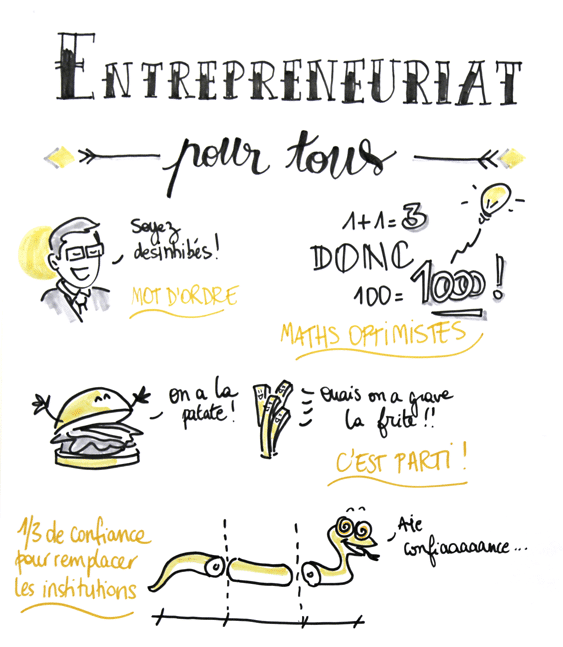 ENTREPRENEURIAT
pour tous
Soyez
desinhibés !
MOT D'ORDRE
1+1=3
DONC
100= 1000 !
MATHS OPTIMISTES
on a la
patate !
ouais on a grave
la frite !!
C'EST PARTI !
1/3 de confiance
pour remplacer
les institutions
Aie
confiaaaaance...